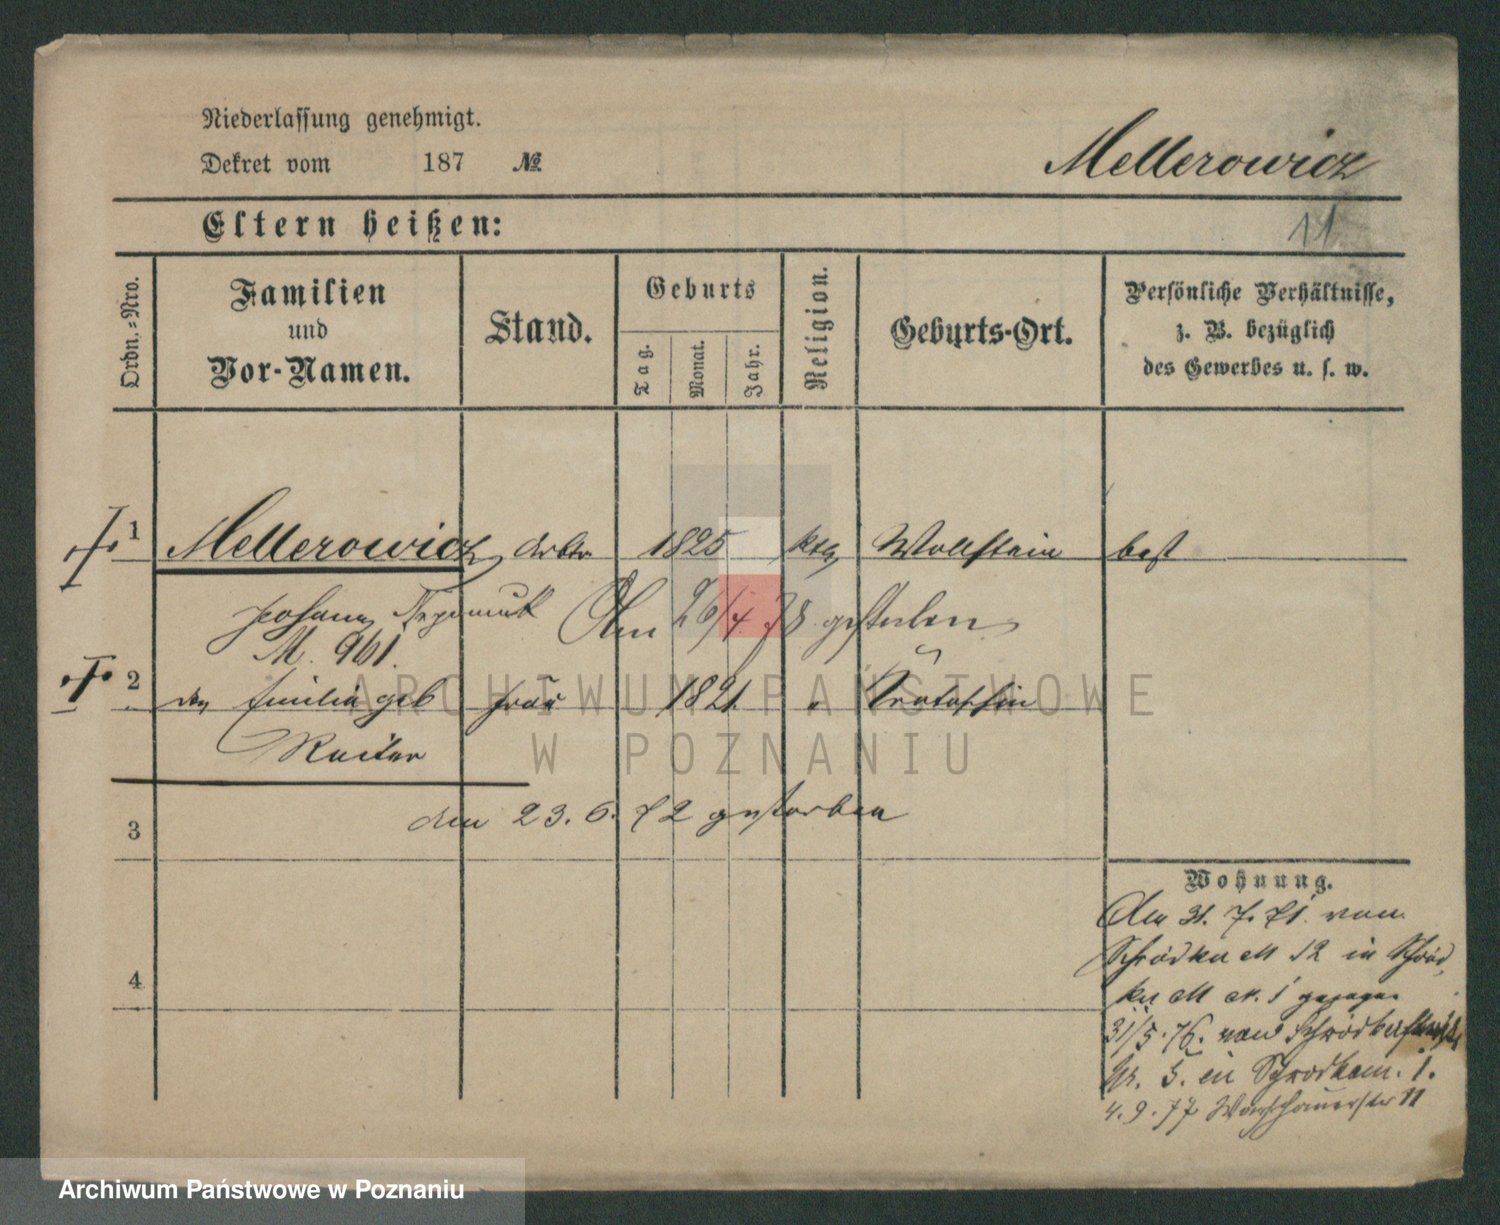 Niederlassung genehmigt.
Dekret vom 187 №
Mellerowicz
Eltern heißen:
11
Ordn.=Nro.
Familien
und
Vor-Namen.
Stand.
Geburts
Tag.
Monat.
Jahr.
Religion.
Geburts-Ort.
Persönliche Verhältnisse,
z. B. bezüglich
des Gewerbes u. s. w.
1 Mellerowicz Arbtr 1825 kth Wollstein best
Johann Nepomuk Am 26/4 78 gestorben
M. 961.
2 Emilia geb Frau 1821. " Krotoschin
Reiter
den 23. 6. 72 gestorben
3
4
Wohnung.
Am 31. 7. 71. von
Schrodka N 12 in Schrod
ka N 1 gezogen
31/5. 76. von
Nr. 5. in Schrodkam. 1.
4. 9. 77 Warschauerstr 11
ARCHIWUM PAŃSTWOWE
W POZNANIU
Archiwum Państwowe w Poznaniu